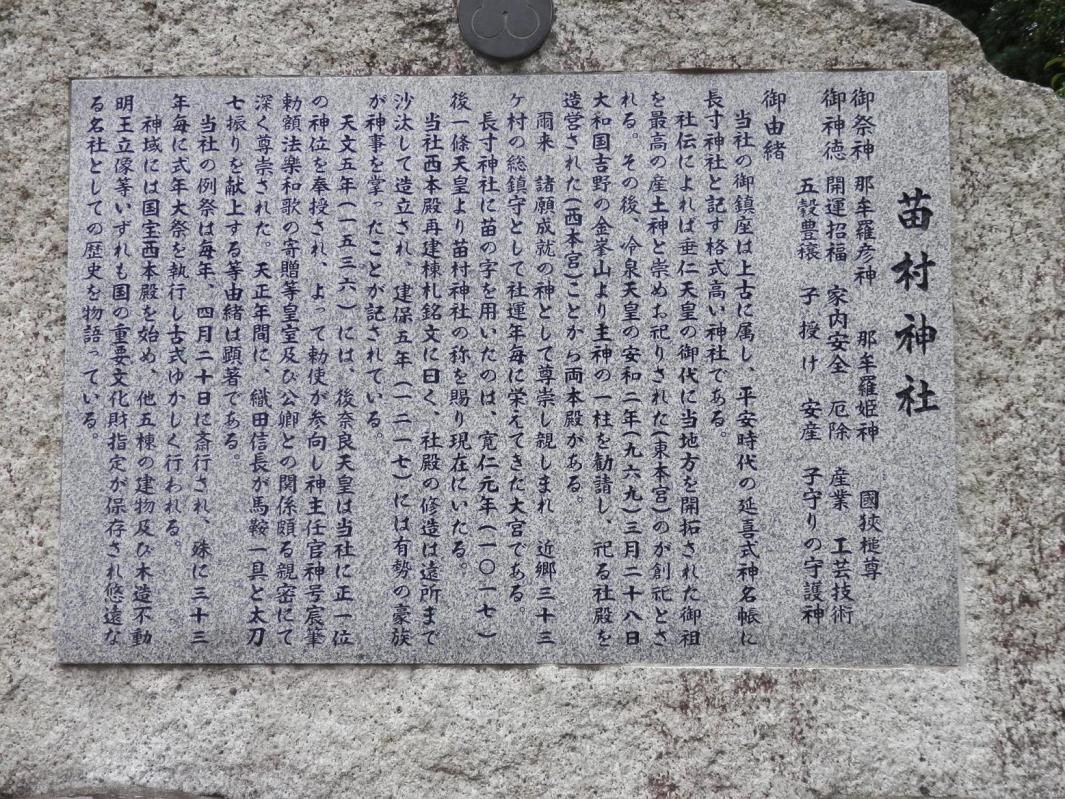 苗村神社
御祭神 那牟羅彦神 那牟羅姫神 國狹槌尊
御神徳 開運招福 家内安全 厄除 産業 工芸技術
五穀豊穣 子授け 安産 子守りの守護神
御由緒
当社の御鎮座は上古に属し、平安時代の延喜式神名帳に
長寸神社と記す格式高い神社である。
社伝によれば垂仁天皇の御代に当地方を開拓された御祖
を最高の産土神と崇めお祀りされた(東本宮)のが創祀とさ
れる。その後、冷泉天皇の安和二年(九六九)三月二十八日
大和国吉野の金峯山より主神の一柱を勧請し、祀る社殿を
造営された(西本宮)ことから両本殿がある。
爾来 諸願成就の神として尊崇し親しまれ 近郷三十三
ヶ村の総鎮守として社運年毎に栄えてきた大宮である。
長寸神社に苗の字を用いたのは、寛仁元年(一〇一七)
後一條天皇より苗村神社の称を賜り現在にいたる。
当社西本殿再建棟札銘文に曰く、社殿の修造は遠所まで
沙汰して造立され、建保五年(一二一七)には有勢の豪族
が神事を掌ったことが記されている。
天文五年(一五三六)には、後奈良天皇は当社に正一位
の神位を奉授され、よって勅使が参向し神主任官神号宸筆
勅額法樂和歌の寄贈等皇室及び公卿との関係頗る親密にて
深く尊崇された。天正年間に、織田信長が馬鞍一具と太刀
七振りを献上する等由緒は顕著である。
当社の例祭は毎年、四月二十日に斎行され、殊に三十三
年毎に式年大祭を執行し古式ゆかしく行われる。
神域には国宝西本殿を始め、他五棟の建物及び木造不動
明王立像等いずれも国の重要文化財指定が保存され悠遠な
る名社としての歴史を物語っている。